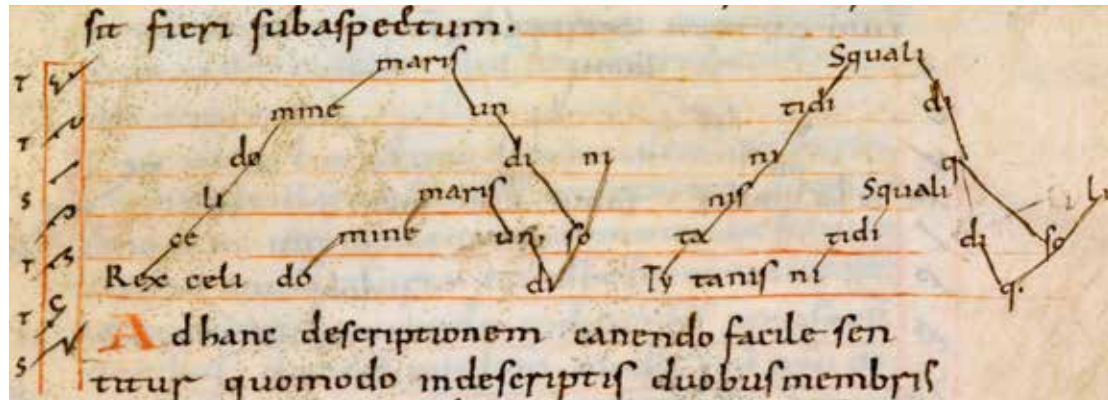 sit fieri subaspectum.
maris Squali
mine un tidi di
do di ni ni q
li maris nis Squali li
ce mine un so ta tidi di so
Rex celi do di Ty tanis ni q.
Ad hanc descriptionem canendo facile sen
titur quomodo indescriptis duobusmembris